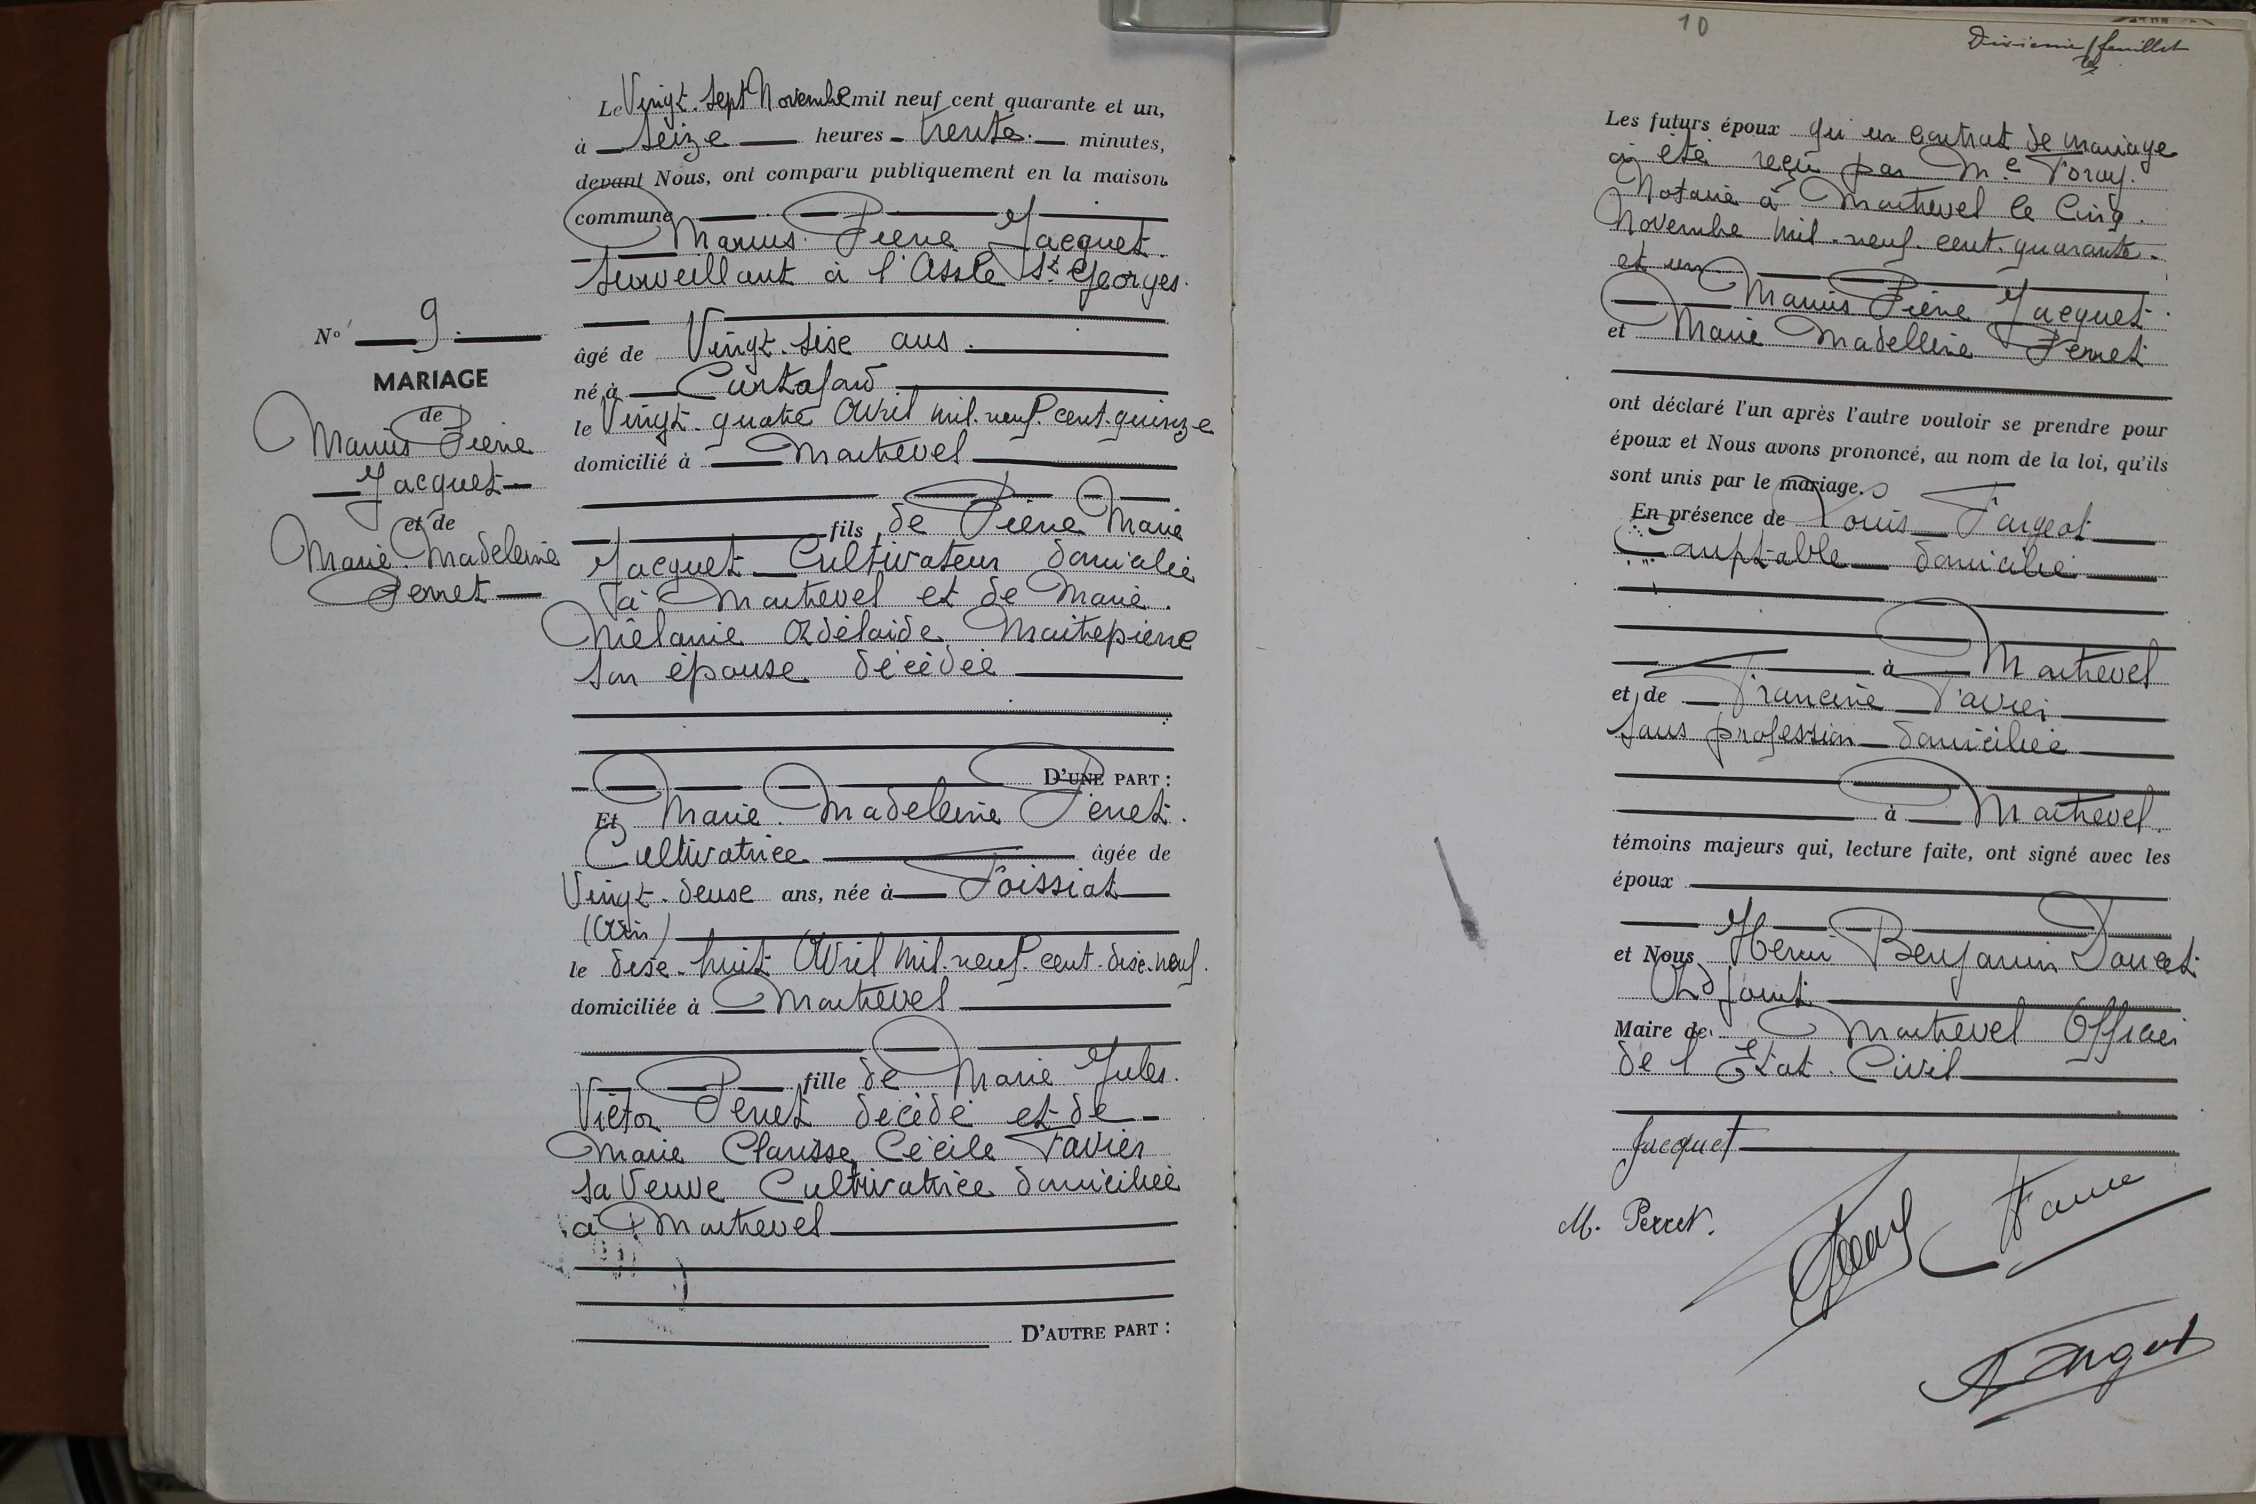 Le Vingt. Sept Novembre mil neuf cent quarante et un,
à seize heures trente. minutes,
devant Nous, ont comparu publiquement en la maison
commune
Marius. Pierre Jacquet.
Surveillant à l'Asile St Georges.
N° 9.
âgé de Vingt. sixe ans.
MARIAGE
né à Curtafond
de
le Vingt. quatre Avril mil. neuf. cent. quinze
Marius Pierre
domicilié à Montrevel
Jacquet
fils de Pierre Marie
et de
Jacquet Cultivateur domicilié
Marie. Madeleine
Perret
à Montrevel et de Marie.
Mélanie Adélaïde Maitrepierre
son épouse décédée
D'UNE PART :
Et Marie. Madeleine Perret.
Cultivatrice âgée de
Vingt. deuxe ans, née à Foissiat
(Ain)
le dixe. huit Avril mil. neuf. cent. dix. neuf.
domiciliée à Montrevel
fille de Marie Jules.
Victor Perret décédé et de
Marie Clarisse Cécile Favier
sa Veuve Cultivatrice domiciliée
à Montrevel
D'AUTRE PART :
10
feuillet
Les futurs époux qu'un contrat de mariage
a été reçu par Me Foray.
Notaire à Montrevel le Cinq.
Novembre mil. neuf. cent. quarante.
et un
Marius Pierre Jacquet.
et Marie Madelleine Perret
ont déclaré l'un après l'autre vouloir se prendre pour
époux et Nous avons prononcé, au nom de la loi, qu'ils
sont unis par le mariage.
En présence de Louis Fargeot
Comptable domicilié
à Montrevel
et de Francine Favier
sans profession domiciliée
à Montrevel.
témoins majeurs qui, lecture faite, ont signé avec les
époux
et Nous Henri Benjamin Doucet
Adjoint
Maire de Montrevel Officier
de l'Etat. Civil
Jacquet
M. Perret.